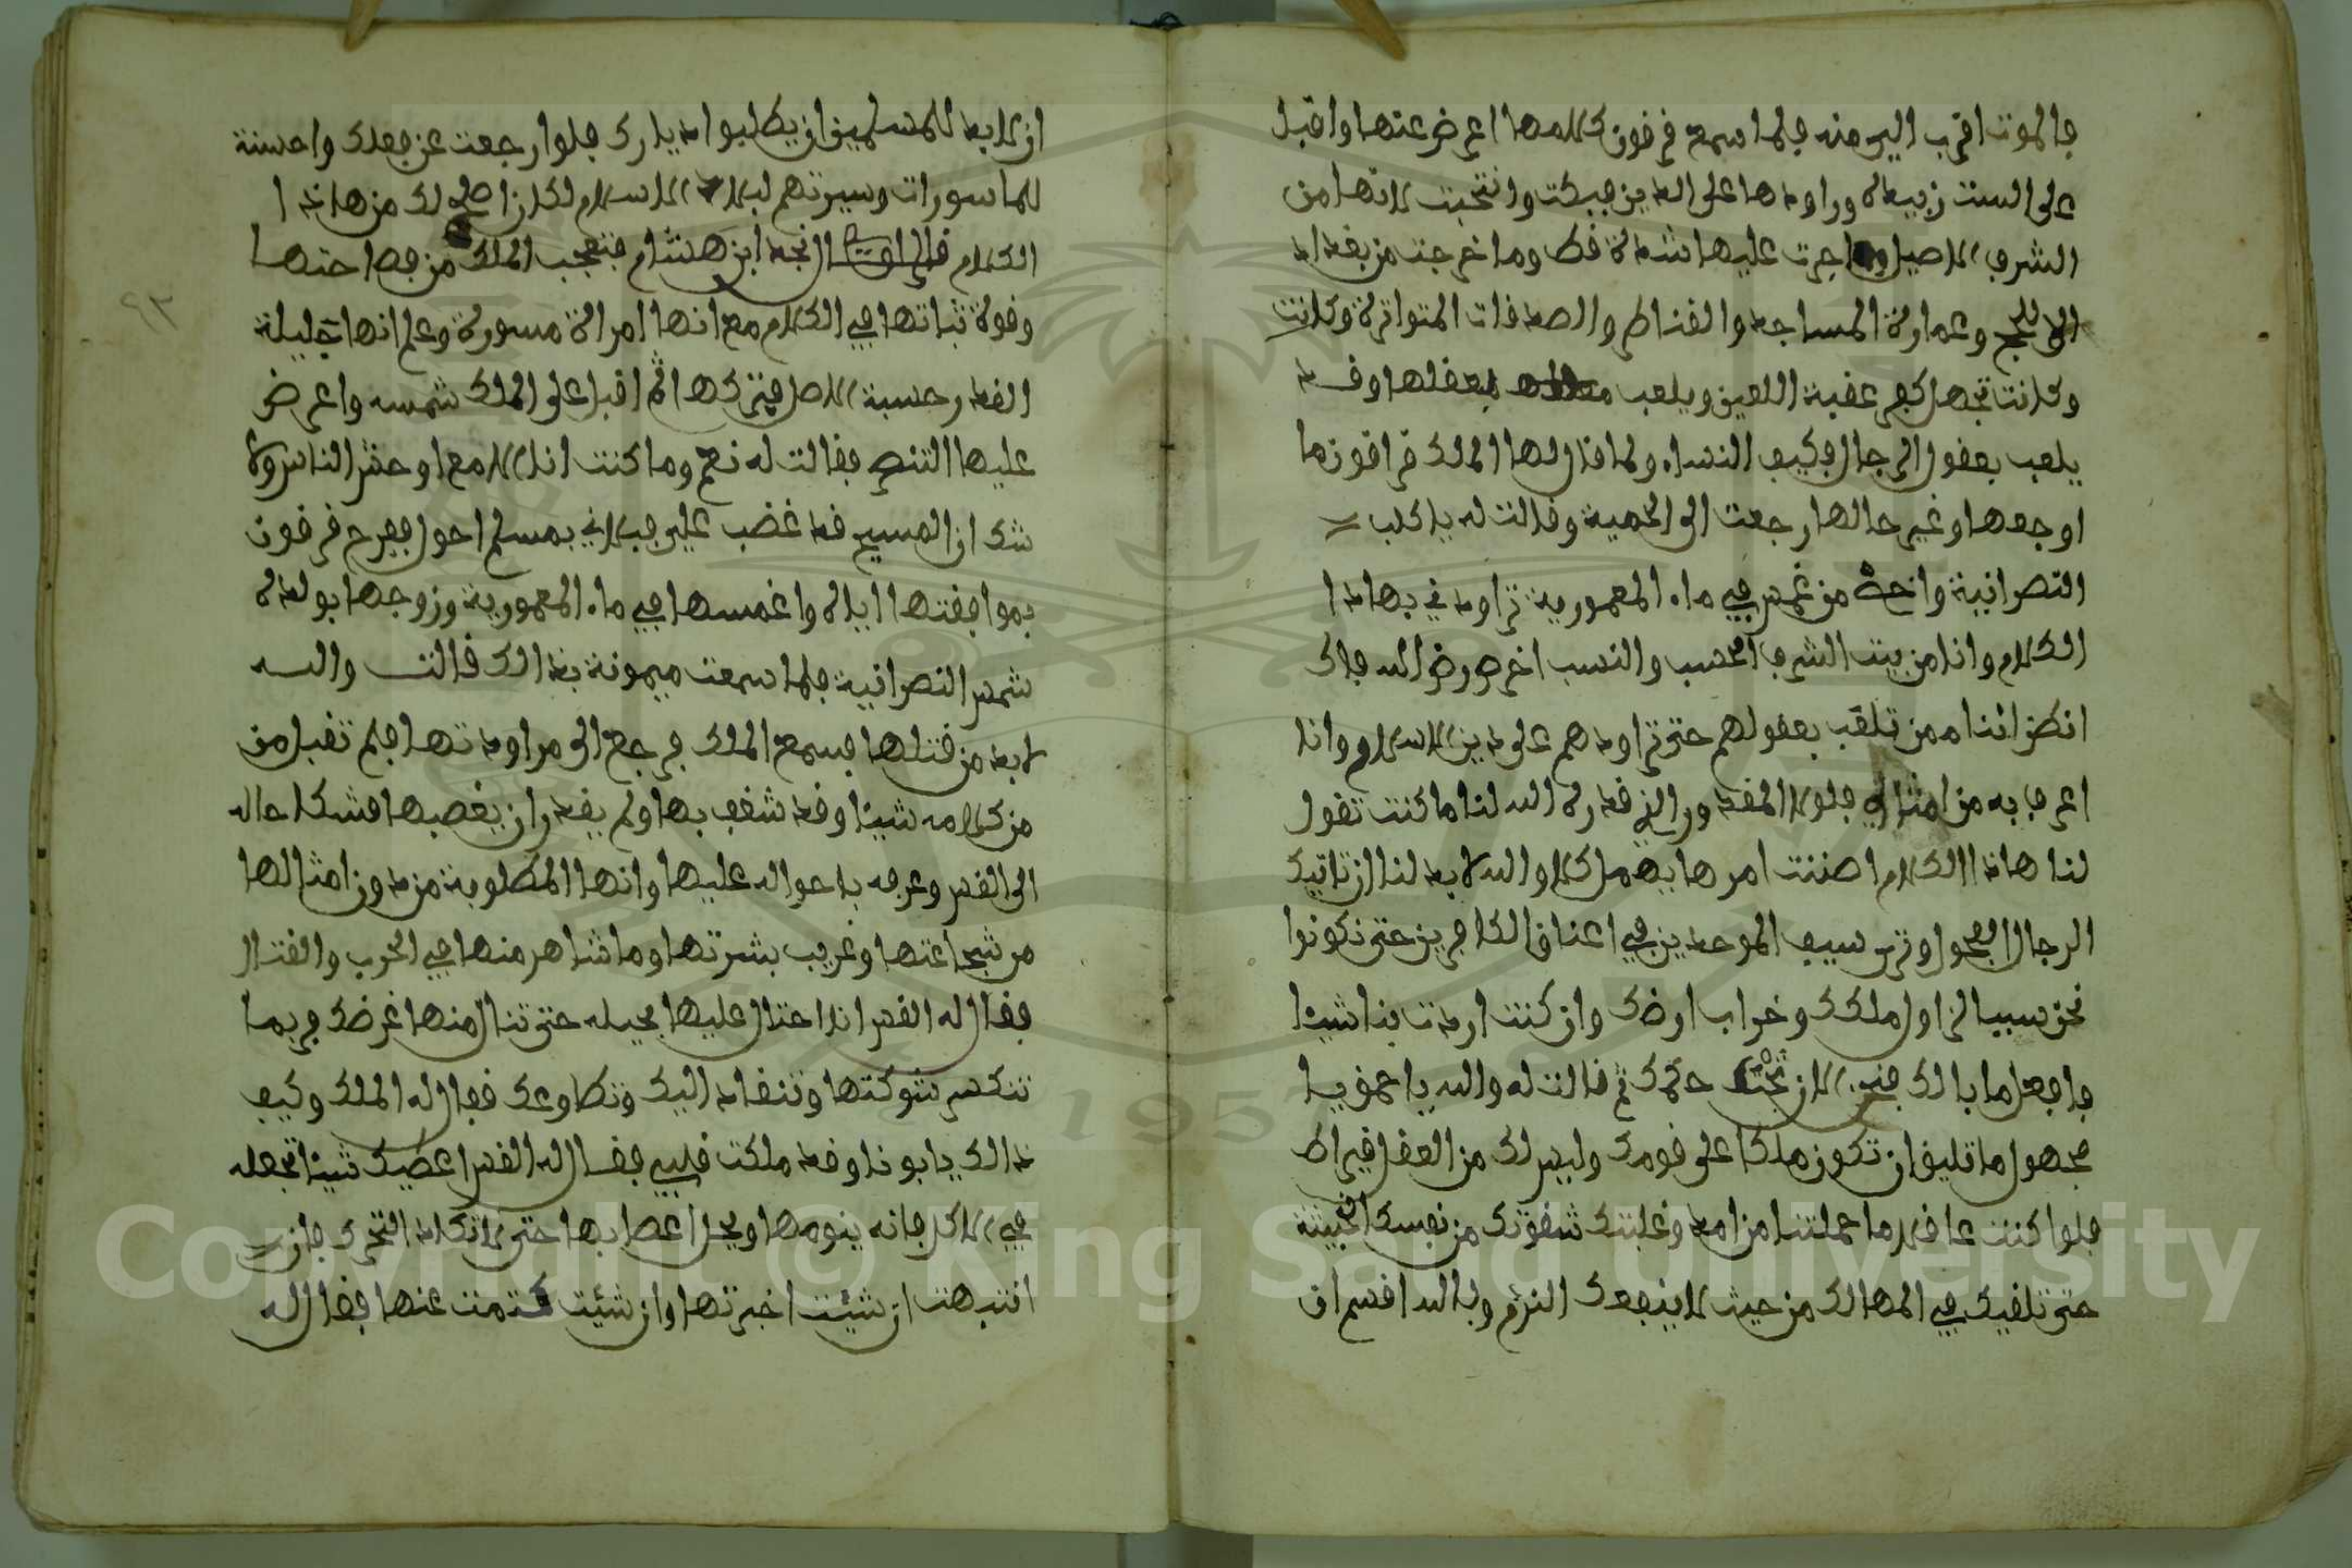 فالموت اقرب اليك منه فلما سمع قرقون كلامها اعرض عنها واقبل
على الست زبيدة وراودها على الدين فبكت وانتحبت لانها من
الشرف الاصيل وما جرت عليها شدة قط وما خرجت من بغداد
الا للحج وعمارة المساجد والقناطر والصدقات المتواترة وكانت
وكانت تجهل كفر عقبة اللعين ويلعب بعقلها وقد
يلعب بعقول الرجال فكيف النساء ولما قال لها الملك قراقونما
اوجعها وغير حالها رجعت الى الحمية وقالت له يا كلب
النصرانية واخس من غمس في ماء المعمورية تراودني بهاذا
الكلام وانا من بيت الشرف الحسب والنسب اخرص رض الله فاك
اتظن اننا ممن تلعب بعقولهم حتى تراودهم على دين الاسلام وانا
اعرف به من امثالك فلولا المقدور الذي قدره الله لنا ما كنت تقول
لنا هاذا الكلام اظننت امرها يهمل كلا والله لابد لنا ان تاتيك
الرجال الفحول وترى سيف الموحدين في اعناق الكافرين حتى نكونوا
نحن سببا لزاول ملكك وخراب ارضك وان كنت اردت بنا شيئا
فافعل ما بالك فنحن الان تحت حكمك ثم قالت له والله يا حمق يا
مجهول ما تليق ان تكون ملكا على قومك وليس لك من العقل قيراط
فلوا كنت عاقلا ما حملتنا من امد وغلبتك شقوتك من نفسك الخبيثة
حتى تلقيك في المهالك من حيث لا ينفعك الندم وبالله اقسم ان
ان لابد للمسلمين ان يطلبوا ديارك فلوا رجعت عن فعلك واحسنت
للماسورات وسيرتهم لبلاد الاسلام لكان اصلح لك من هاذا
الكلام قال الراوي النجد ابن هشام فتعجب الملك من فصاحتها
وقوة ثباتها في الكلام مع انها امراة مسورة وعلم انها جليلة
القدر حسبة الاصل فتركها ثم اقبل على الملك شمسه واعرض
عليها التنصر فقالت له نعم وما كنت انا الا مع اوحش الناس ولا
شك ان المسيح قد غضب علي فبلاني بمسلم احول ففرح قرقون
بموافقتها اياه واغمسها في ماء المعمورية وزوجها بولده
شمس النصرانية فلما سمعت ميمونة بذالك قالت والله
لابد من قتلها فسمع الملك فرجع الى مراودتها فلم تقبل من
من كلامه شيئا وقد شغف بها ولم يقدر ان يغصبها فشكا حاله
الى القس وعرفه باحواله عليها وانها المطلوبة من دون امثالها
من شجاعتها وغريب بشرتها وما شاهر منها في الحرب والقتال
فقال له القس انا احتال عليها بحيله حتى تنال منها غرضك فربما
تنكسر شوكتها وتنقاد اليك وتطاوعك فقال له الملك وكيف
ذالك يابونا وقد ملكت قلبي فقال له القس اعطيك شيئا تجعله
في الاكل فانه ينومها ويحل اعصابها حتى لا تكاد التحرك فان
انتبهت ان شيئت اخبرتها وان شيئت كتمت عنها فقال له
٩٣
Copyright © King Saud University
1957